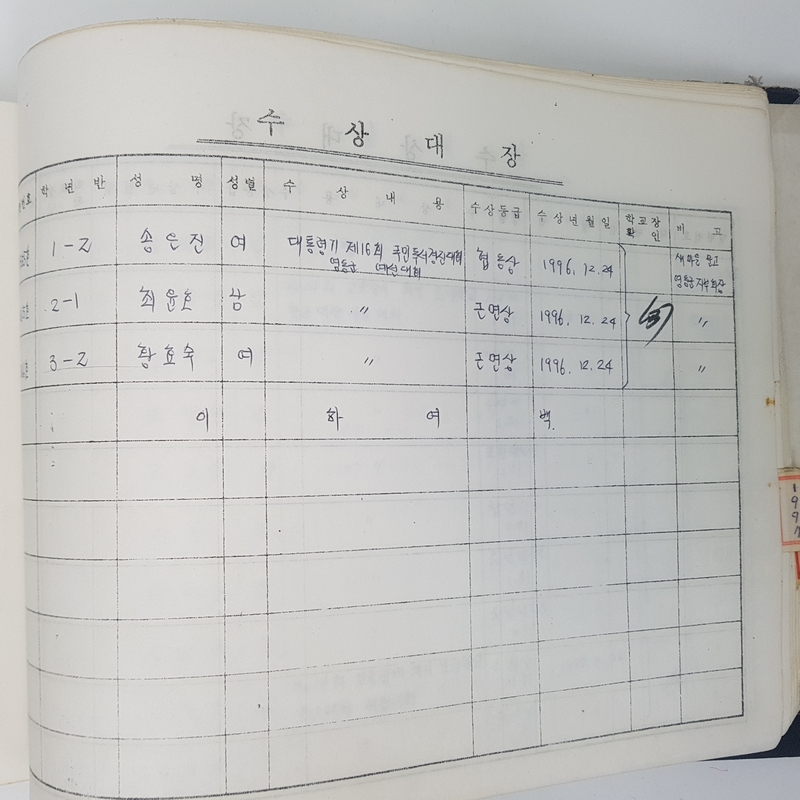 수 상 대 장
번호 학 년 반 성 명 성별 수 상 내 용 수상등급 수상년월일 학교장 확 인 비 고
1-2 송은진 여 대통령기 제16회 국민독서경진대회 협동상 1996. 12. 24 새마을문고
영동군 예선대회 영동군지부회장
2-1 최윤호 남 〃 근면상 1996. 12. 24 〃
3-2 황효숙 여 〃 근면상 1996. 12. 24 〃
이 하 여 백